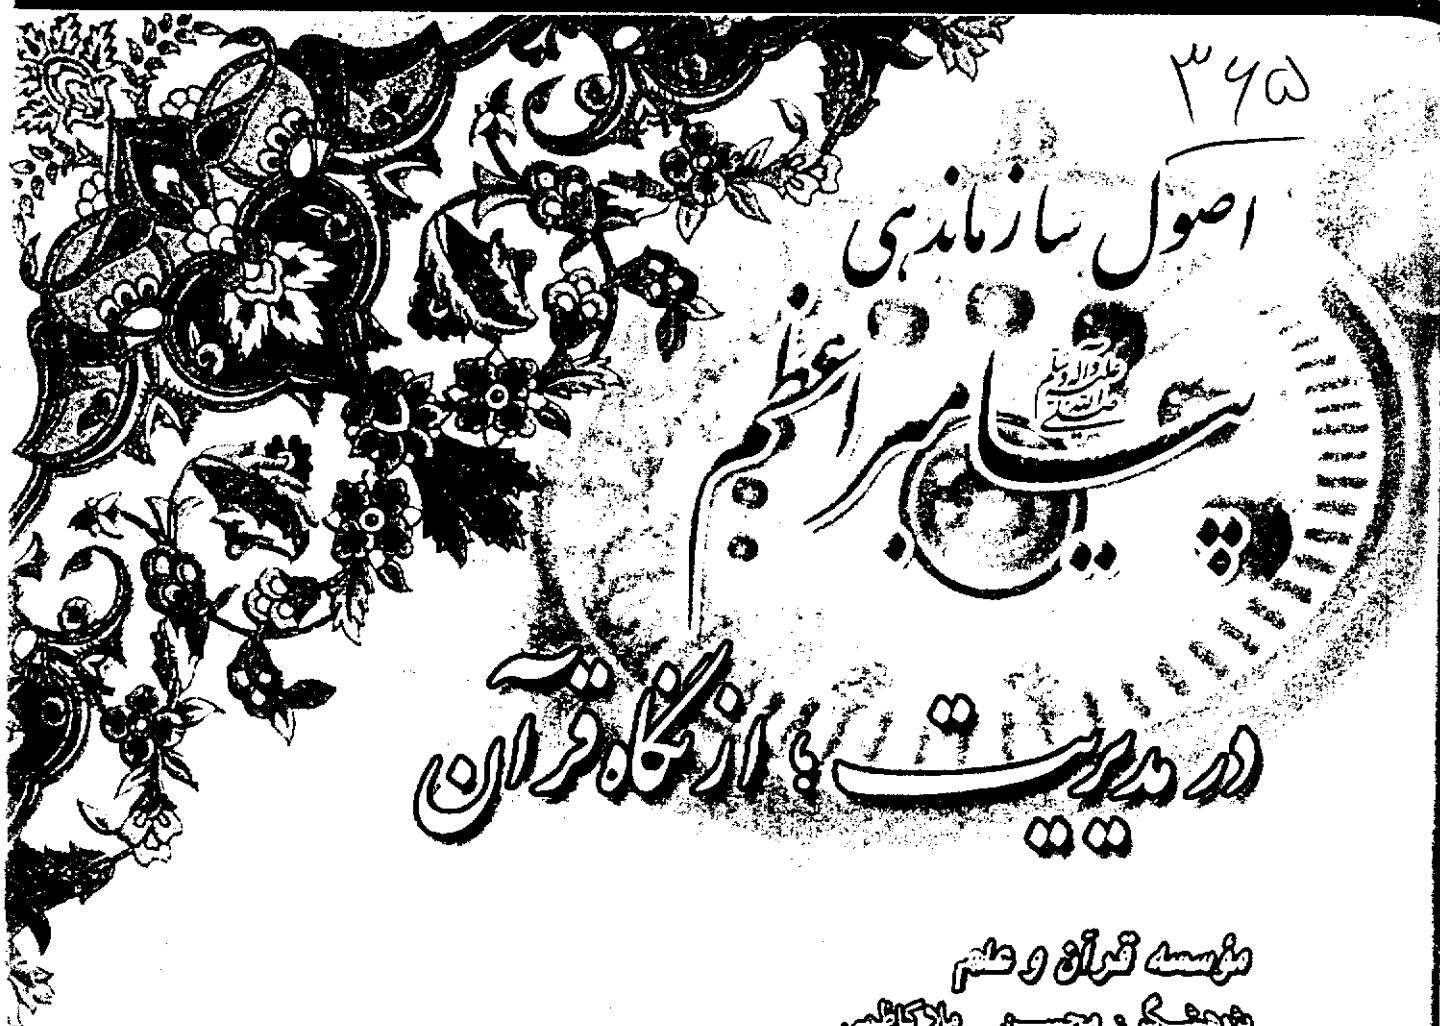 ۳۶۵
اصول سازماندهی
پیامبر اعظم
صلی الله علیه و آله و سلم
در مدیریت با از نگاه قرآن
مؤسسه قرآن و علم